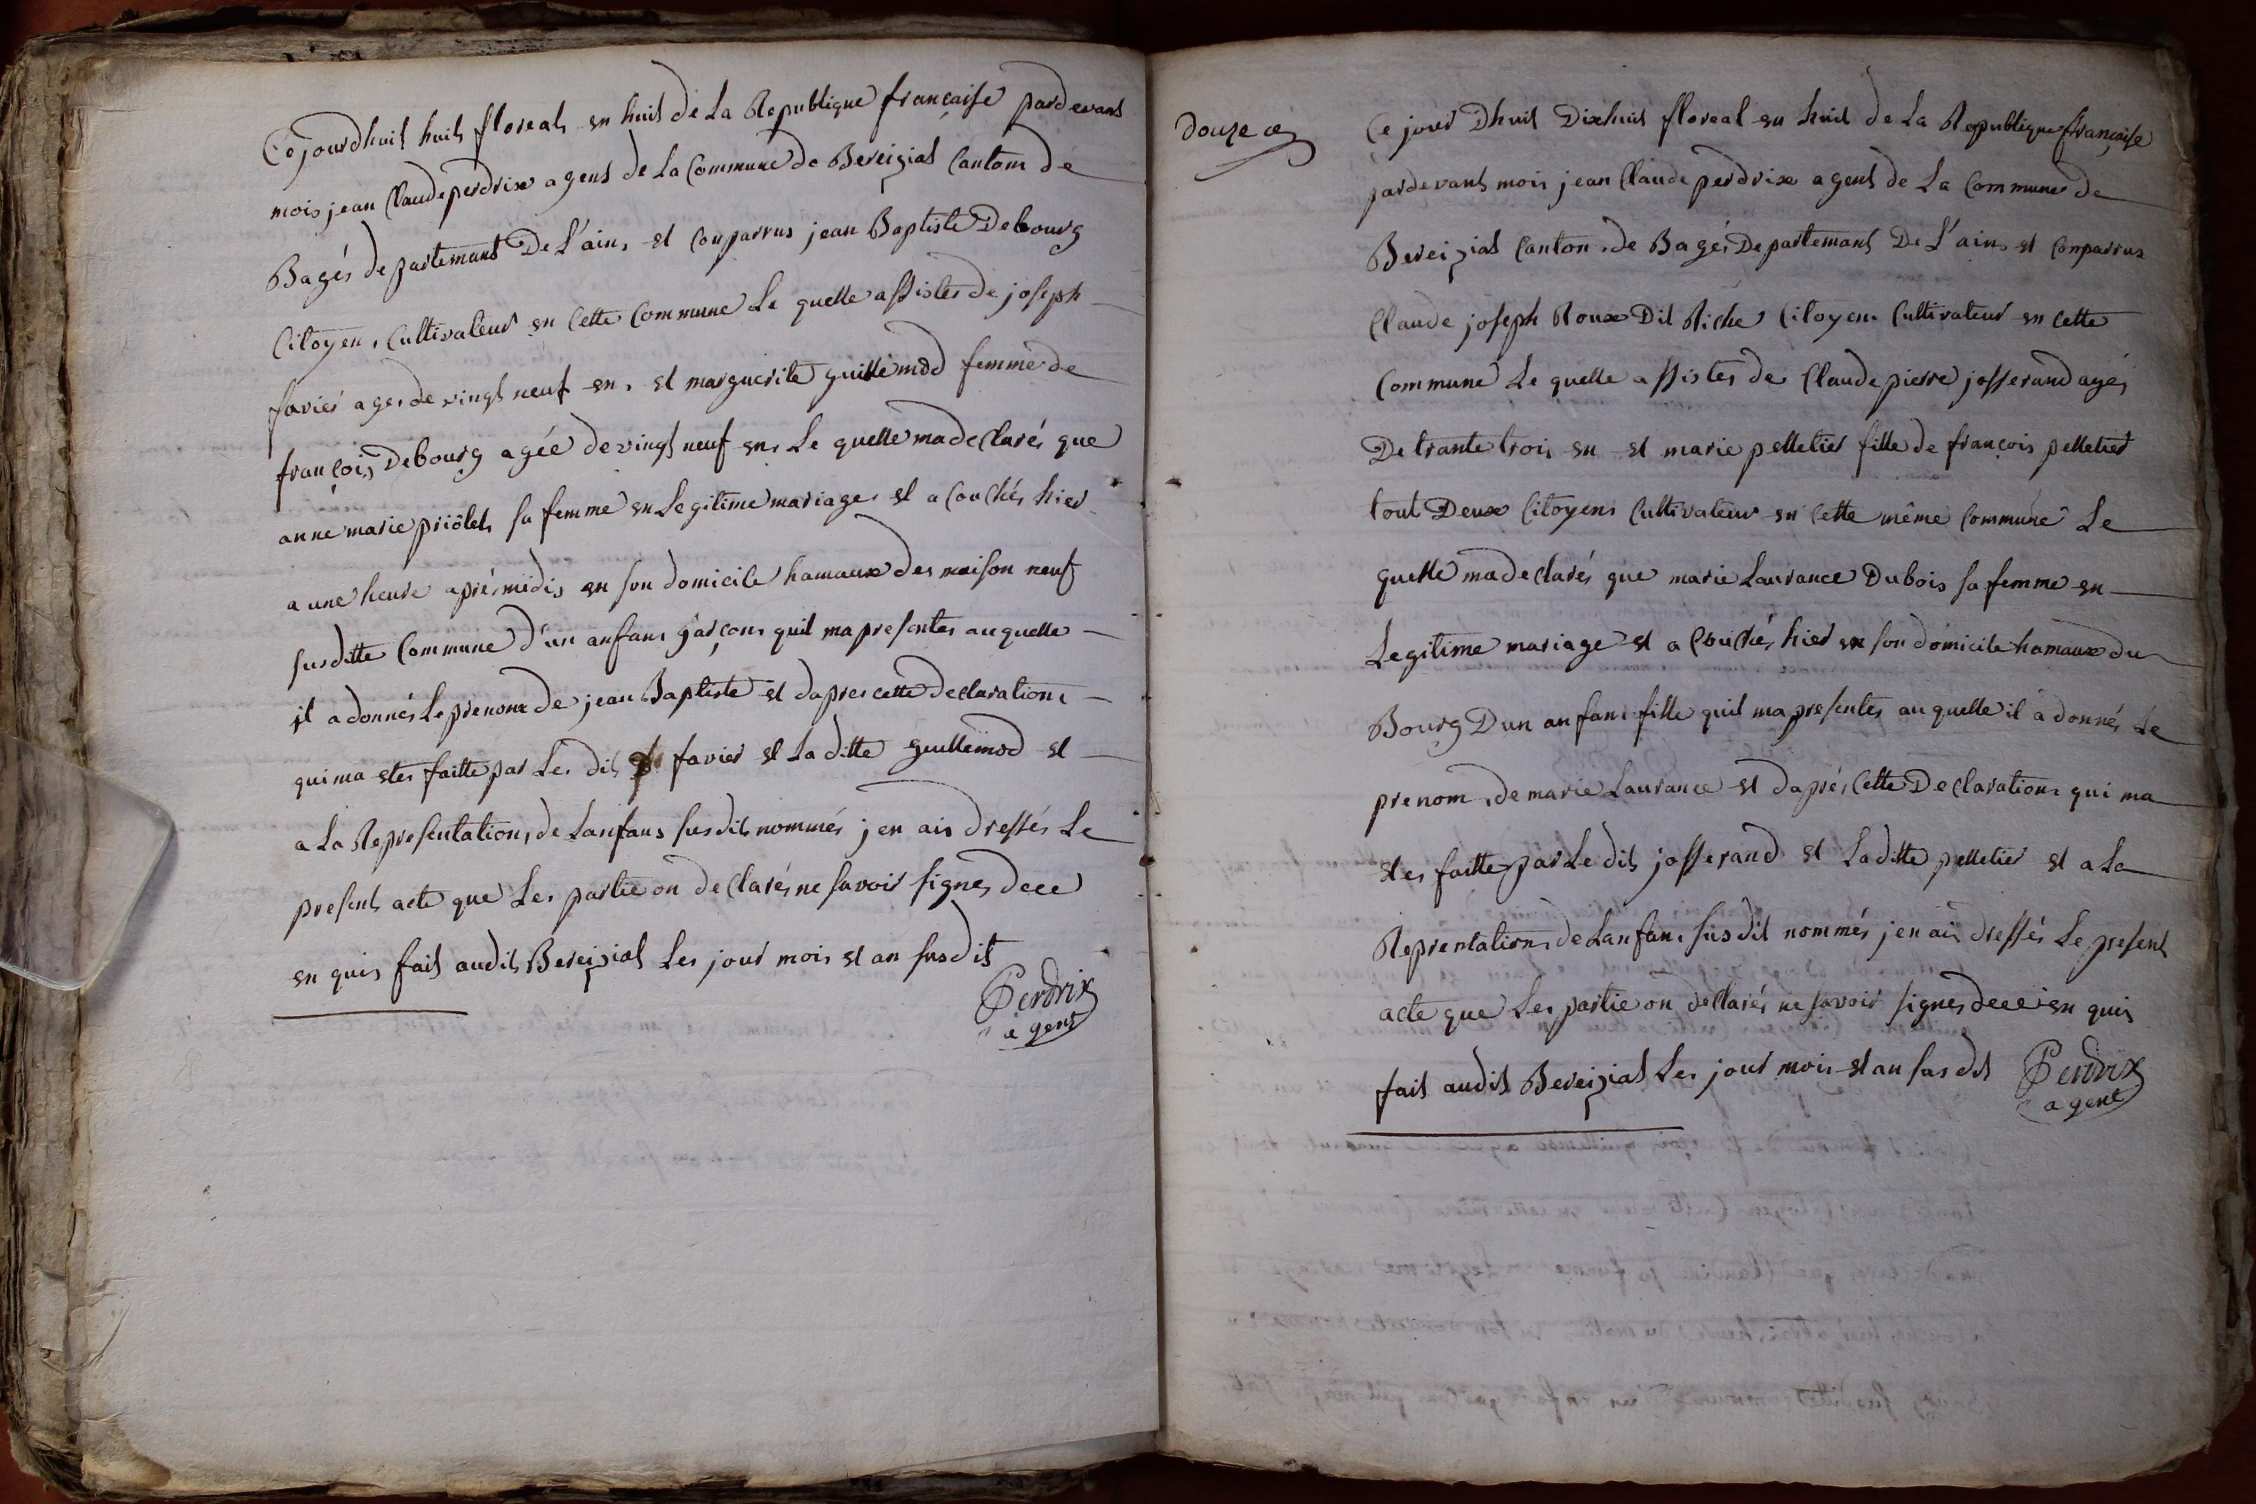 Cejourdhuit huit floreal en huit de La Republique française pardevant
mois jean Claude perdrix agent de La Commune de Bereiziat Canton de
Bagés departemant De L'ain, est Conparrus jean Baptiste Debourg
Citoyen Cultivateur en Cette Commune Le quelle assistes de joseph
favier ages de vingt neuf en, et marguerite guillemod femme de
françois Debourg agée de vingt neuf en, Le quelle ma declarés que
anne marie priôlet sa femme en Legitime mariage, et a Couchés hier
a une heure aprés midis en son domicile hamaux des maison neuf
susditte Commune d'un anfans garçon, quil ma presentes auquelle
il a donnés Le prenom de jean Baptiste et dapres cette declaration
qui ma etes faitte par Les dit favier et La ditte guillemod et
a La Representation, de Lanfans susdit nommés jen ais dressés Le
present acte que Les partie on declarés ne savoir signes dece
en quis fait audit Bereiziat Les jour mois et an susdit
Perdrix
agent
douze
Ce jour Dhuit Dixhuit floreal en huit de La Republique française
pardevant mois jean Claude perdrix agent de La Commune de
Bereiziat Canton de Bagés Departemant De L'ain, et Conparrus
Claude joseph Roux Dit Riche Citoyen Cultivateur en Cette
Commune Le quelle assistes de Claude pierre josserand agés
De trante trois en et marie pelletier fille de françois pelletier
tout Deux Citoyen Cultivateur en Cette même Commune Le
quelle ma declarés que marie Laurance Dubois sa femme en
Legitime mariage et a Couchés hier en son domicile hamaux du
Bourg Dun anfans fille quil ma presentes auquelle il a donnés Le
prenom de marie Laurance et daprés Cette Declaration qui ma
etes faitte par Le dit josserand et La ditte pelletier et a La
Reprentation de Lanfans susdit nommés jen ais dressés Le present
acte que Les partie on declarés ne savoir signes dece en quis
fait audit Bereiziat Les jour mois et an susdit
Perdrix
agent